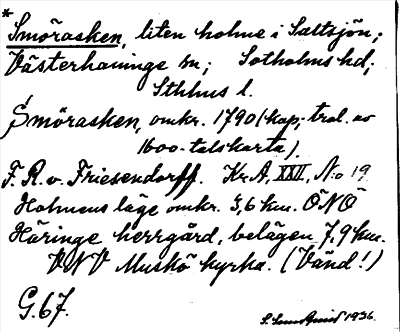 * Smörasken, liten holme i Saltsjön;
Västerhaninge sn; Sotholms hd;
Sthlms l.
Smörasken, omkr. 1790 (kop; trol. av
1600-talskarta).
F. R. v. Friesendorff. Kr. A. XXII, No 19
Holmens läge omkr. 3,6 km. ÖNÖ
Häringe herrgård, belägen 7,9 km.
VNV Muskö kyrka. (Vänd!)
G. 67.
1936.